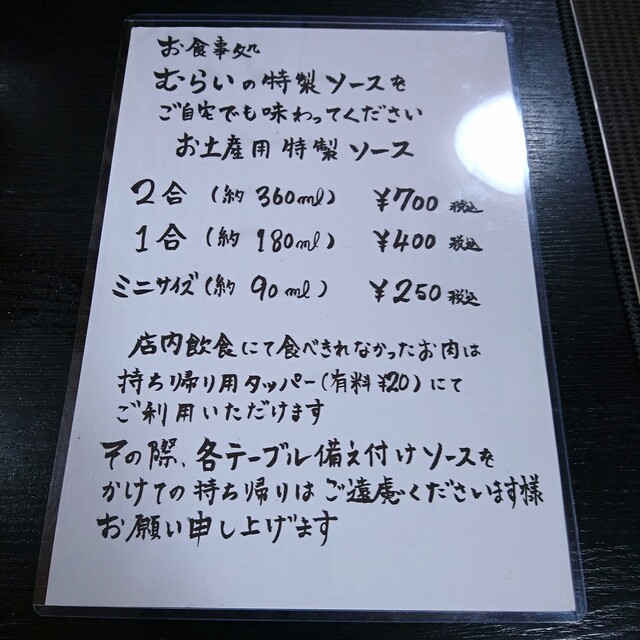 お食事処
むらいの特製ソースを
ご自宅でも味わってください
お土産用特製ソース
2合（約360ml） ¥700税込
1合（約180ml） ¥400税込
ミニサイズ（約90ml） ¥250税込
店内飲食にて食べきれなかったお肉は
持ち帰り用タッパー（有料¥20）にて
ご利用いただけます
その際、各テーブル備え付けソースを
かけての持ち帰りはご遠慮くださいます様
お願い申し上げます